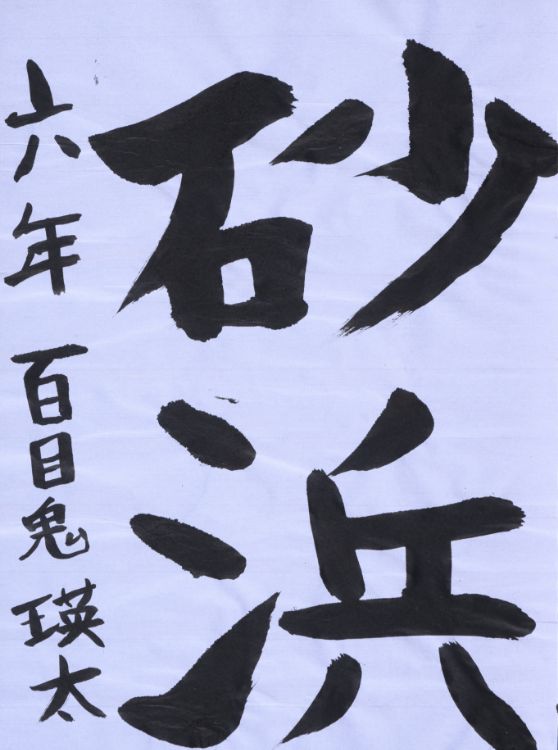 砂浜
六年 百目鬼 瑛太